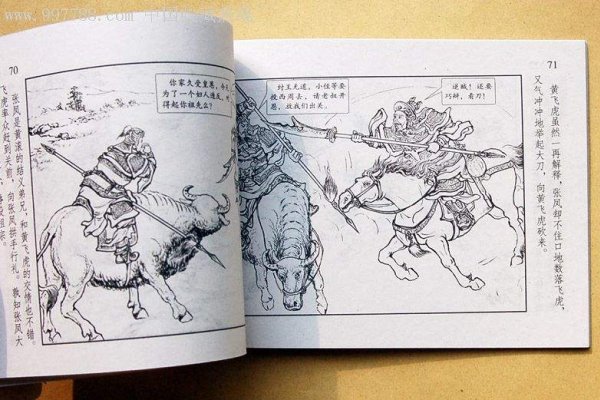 www.997788.com 中国
70
张凤是黄滚的结义弟兄，和黄飞虎的交情也不错。
飞虎率众赶到关前，向张凤拱手行礼。孰知张凤大
你家久受重恩，今
为了一个妇人造反，对
得起你祖先么？
纣王无道，小侄等要
投西周去，请老叔开
恩，放我们出关。
逆贼！还要
巧辩，看刀！
71
黄飞虎虽然一再解释，张凤却不住口地数落飞虎，
又气冲冲地举起大刀，向黄飞虎砍来。